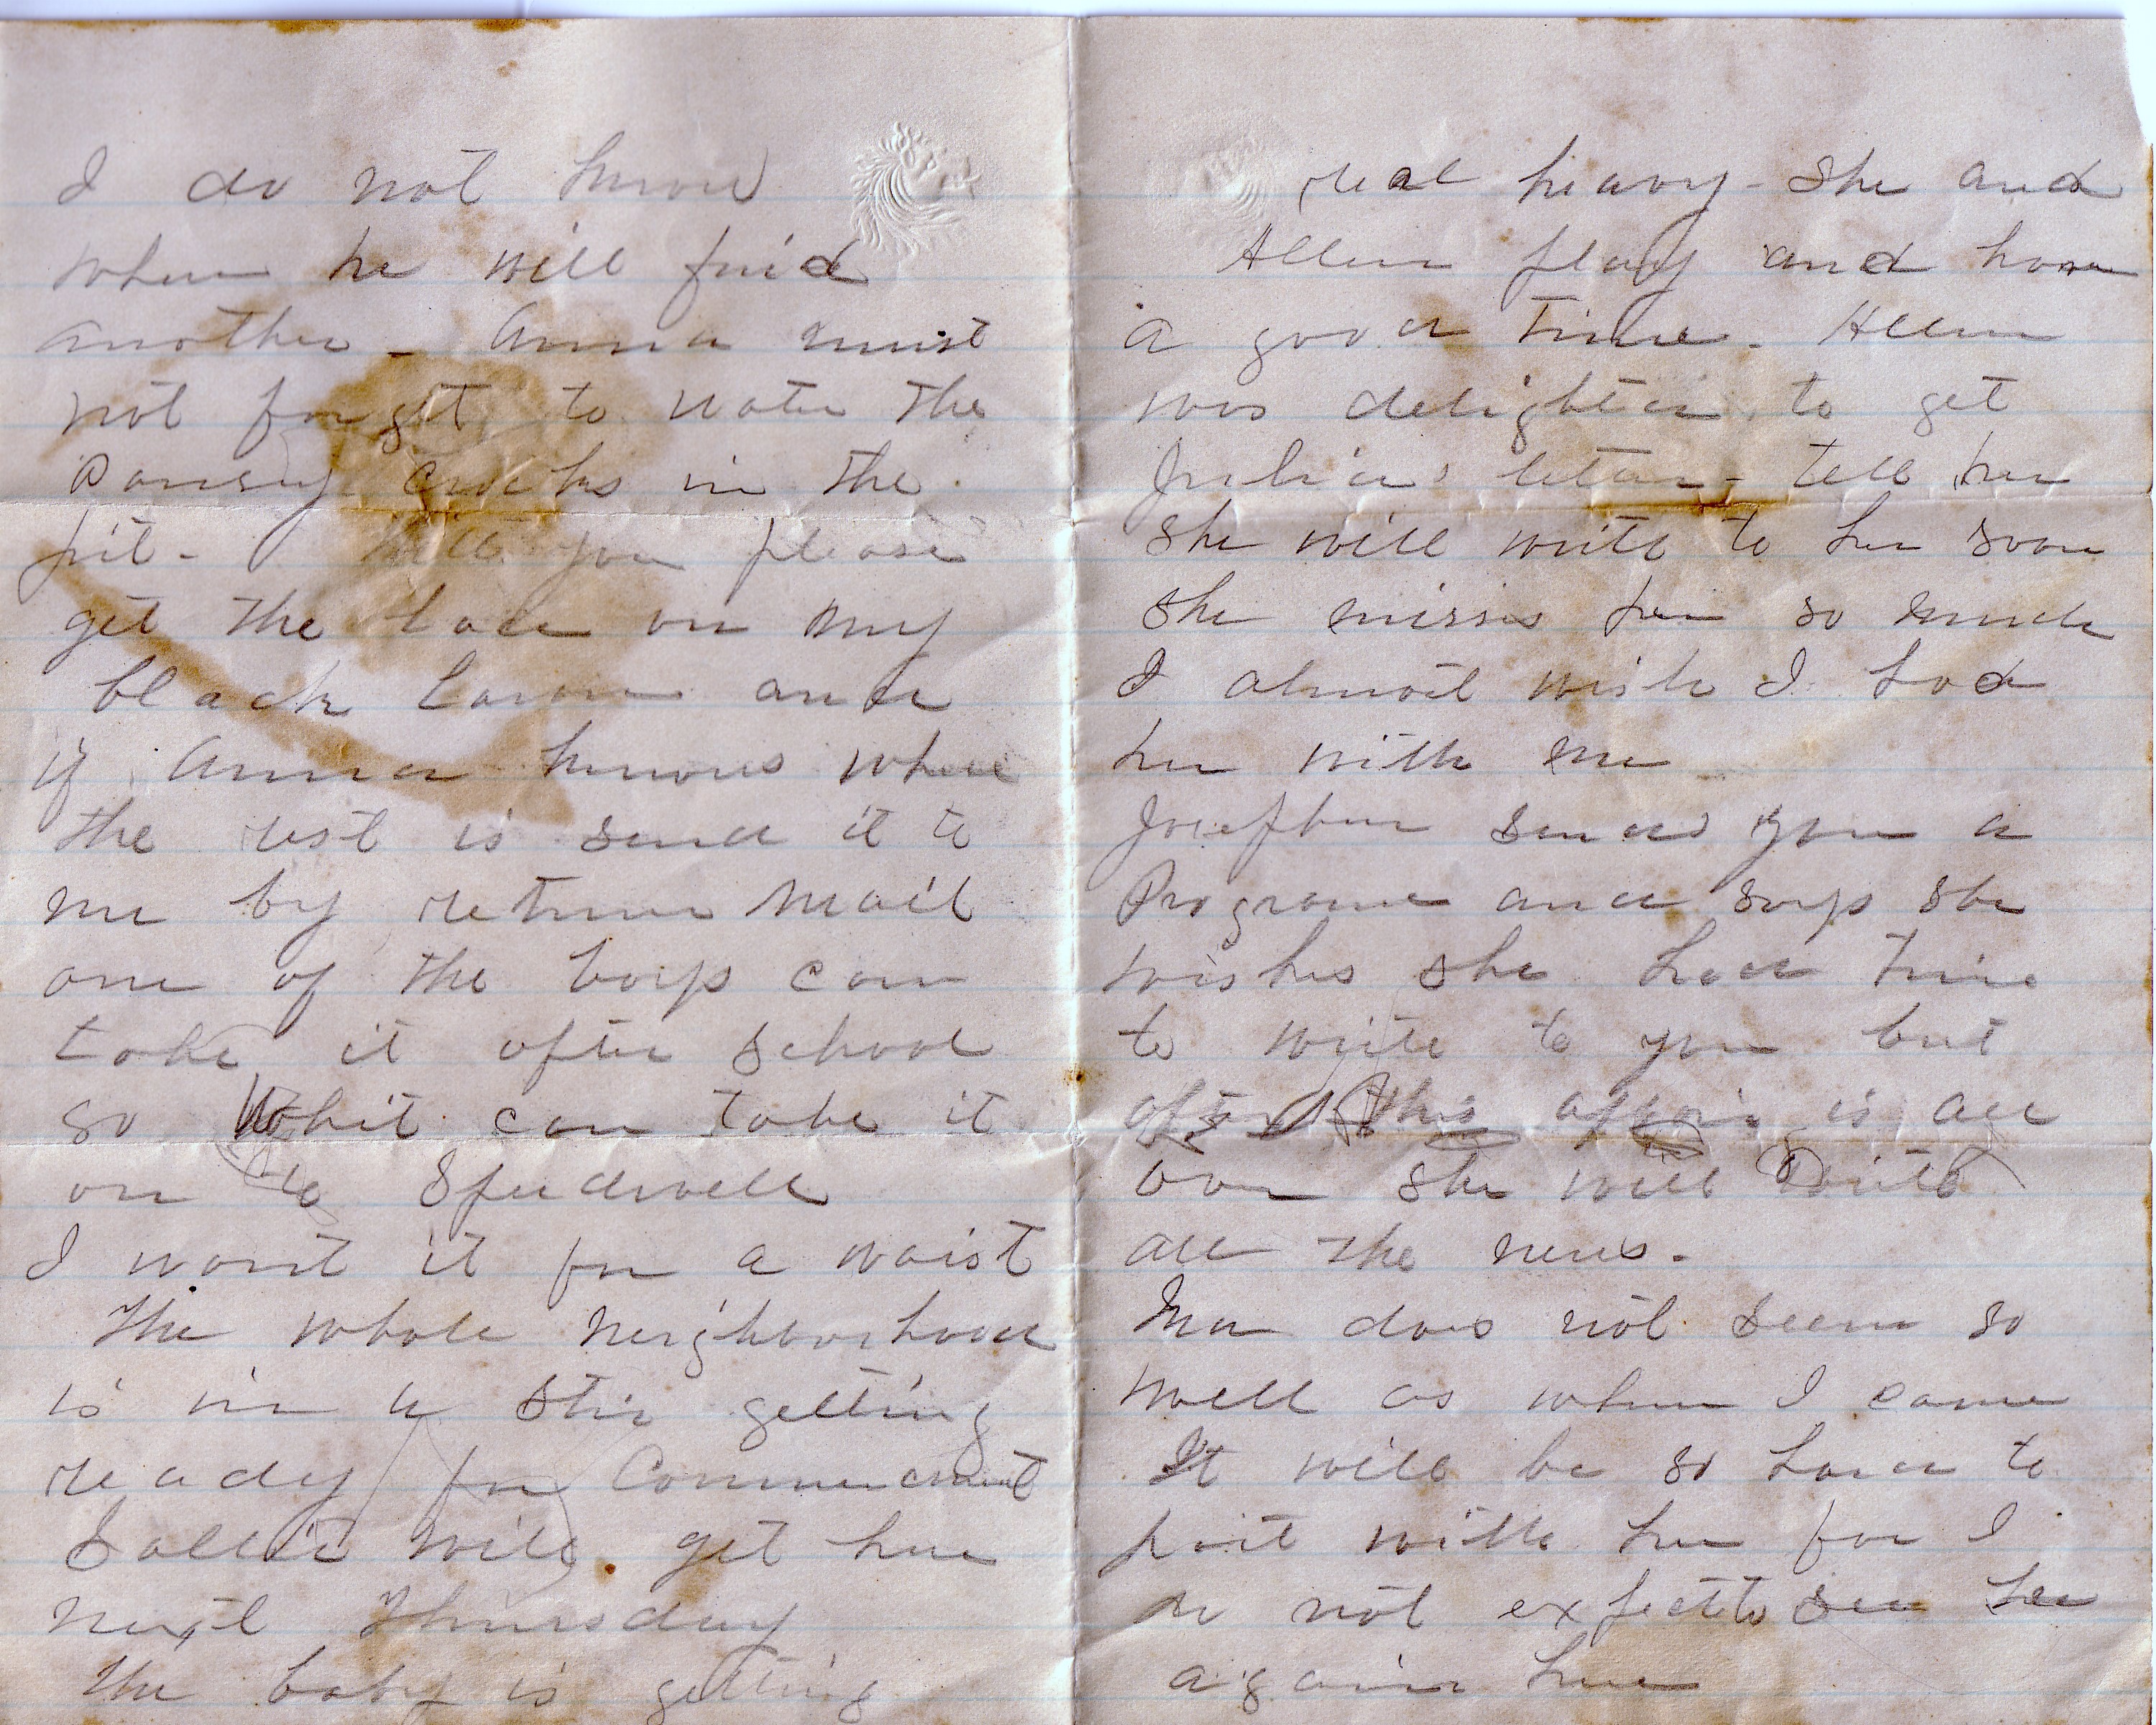 I do not know
where he will find
another - Anna must
not forget to water the
pansy in the
pit - Will you please
get the lace on my
black lawn and
if Anna knows where
the rest is send it to
me by return mail
one of the boys can
take it after school
so Whit can take it
on to Speedwell
I want it for a waist
The whole neighborhood
is in a stir getting
ready for Commencment
Sallie will get here
next Thursday
The baby is getting
real heavy - She and
Allene play and have
a good time - Allene
was delighted to get
Julia's letter - tell her
She will write to her soon
She misses her so much
I almost wish I had
her with me
Josephine sends you a
Programe and says she
wishes she had time
to write to you but
after this affair is all
over she will write
all the news -
Ma does not seem so
well as when I came
It will be so hard to
part with her for I
do not expect to see her
again here